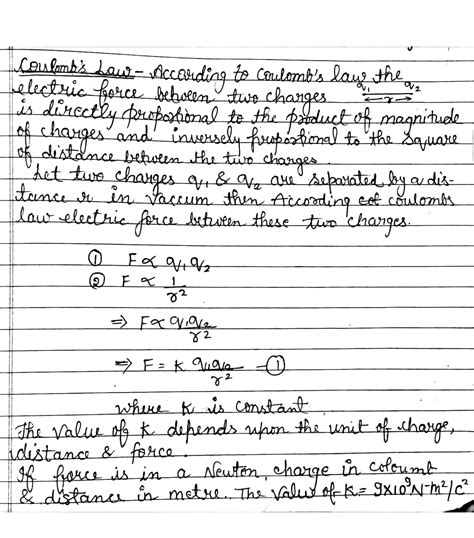 Coulomb's Law - According to Coulomb's law the
electric force between two charges q₁ r q₂
is directly proportional to the product of magnitude
of charges and inversely proportional to the square
of distance between the two charges.
Let two charges q₁ & q₂ are separated by a dis-
tance r in vaccum then According coulombs
law electric force between these two charges.
① F ∝ q₁ q₂
② F ∝ 1/r²
⇒ F ∝ q₁q₂/r²
⇒ F = K q₁q₂/r² —①
where K is constant
The value of K depends upon the unit of charge,
distance & force.
If force is in a Newton, charge in coloumb
& distance in metre. The value of K = 9×10⁹N-m²/c²